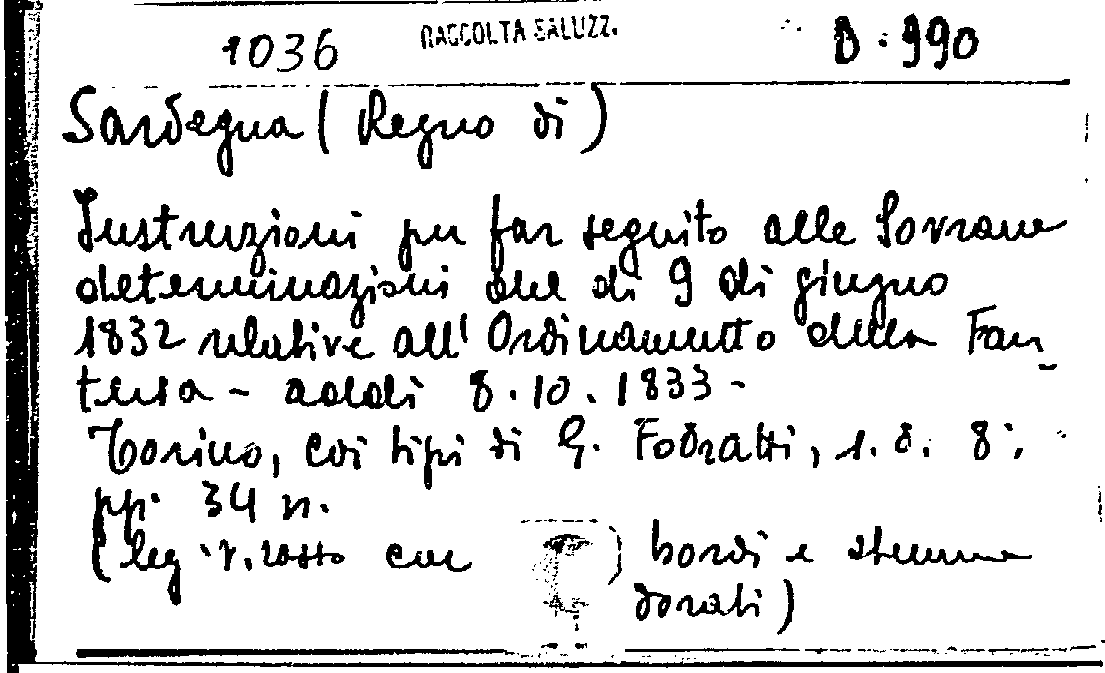 1036 RACCOLTA SALUZZ. B.990
Sardegna (Regno di)
Instruzioni per far seguito alle Sovrane
determinazioni del dì 9 di giugno
1832 relative all'Ordinamento della Fan_
teria - addì 8.10.1833 -
Torino, coi tipi di G. Fodratti, s.d. 8;
pp. 34 n.
(leg. r. rosso con bordi e stemma
dorati)